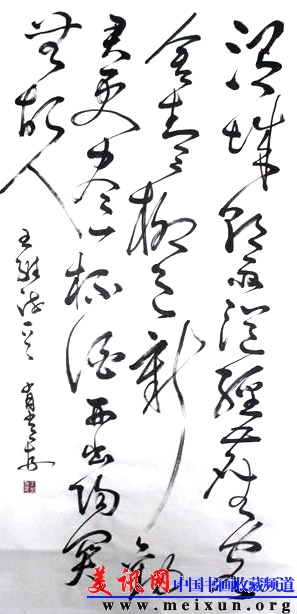 渭城朝雨浥輕塵客
舍青青柳色新勸
君更尽一杯酒西出陽関
無故人
王維詩一首
美讯网 中国书画收藏频道
www.meixun.org